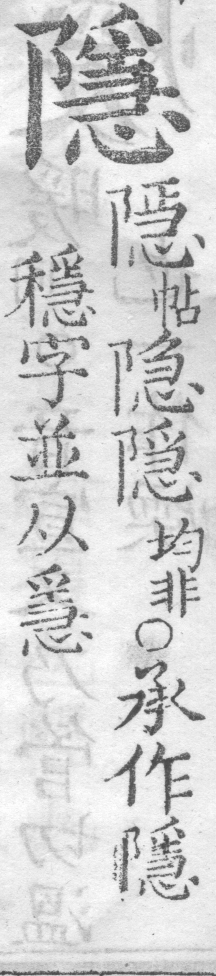 隱
帖隐隠均非〇承作隱
穩字並从㥯